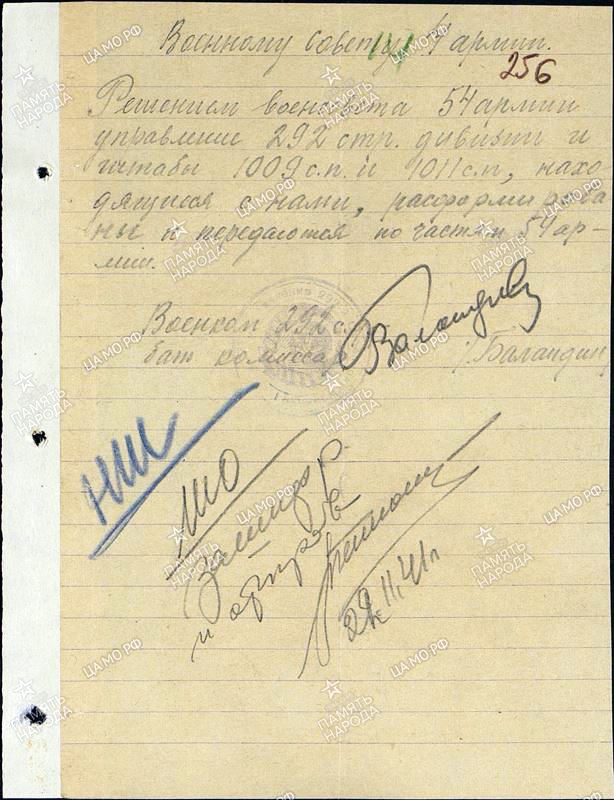 Военному совету 4 армии.
256
Решением военсовета 54 армии
управление 292 стр. дивизии и
штабы 1009 с.п. и 1011 с.п., нахо
дящиеся с нами, расформирова
ны и передаются по частям 54 ар-
мии.
Военком 292 с.
бат комиссар
/Баландин
НШ
ШО
29.11.41г
ПАМЯТЬ НАРОДА
ЦАМО.РФ